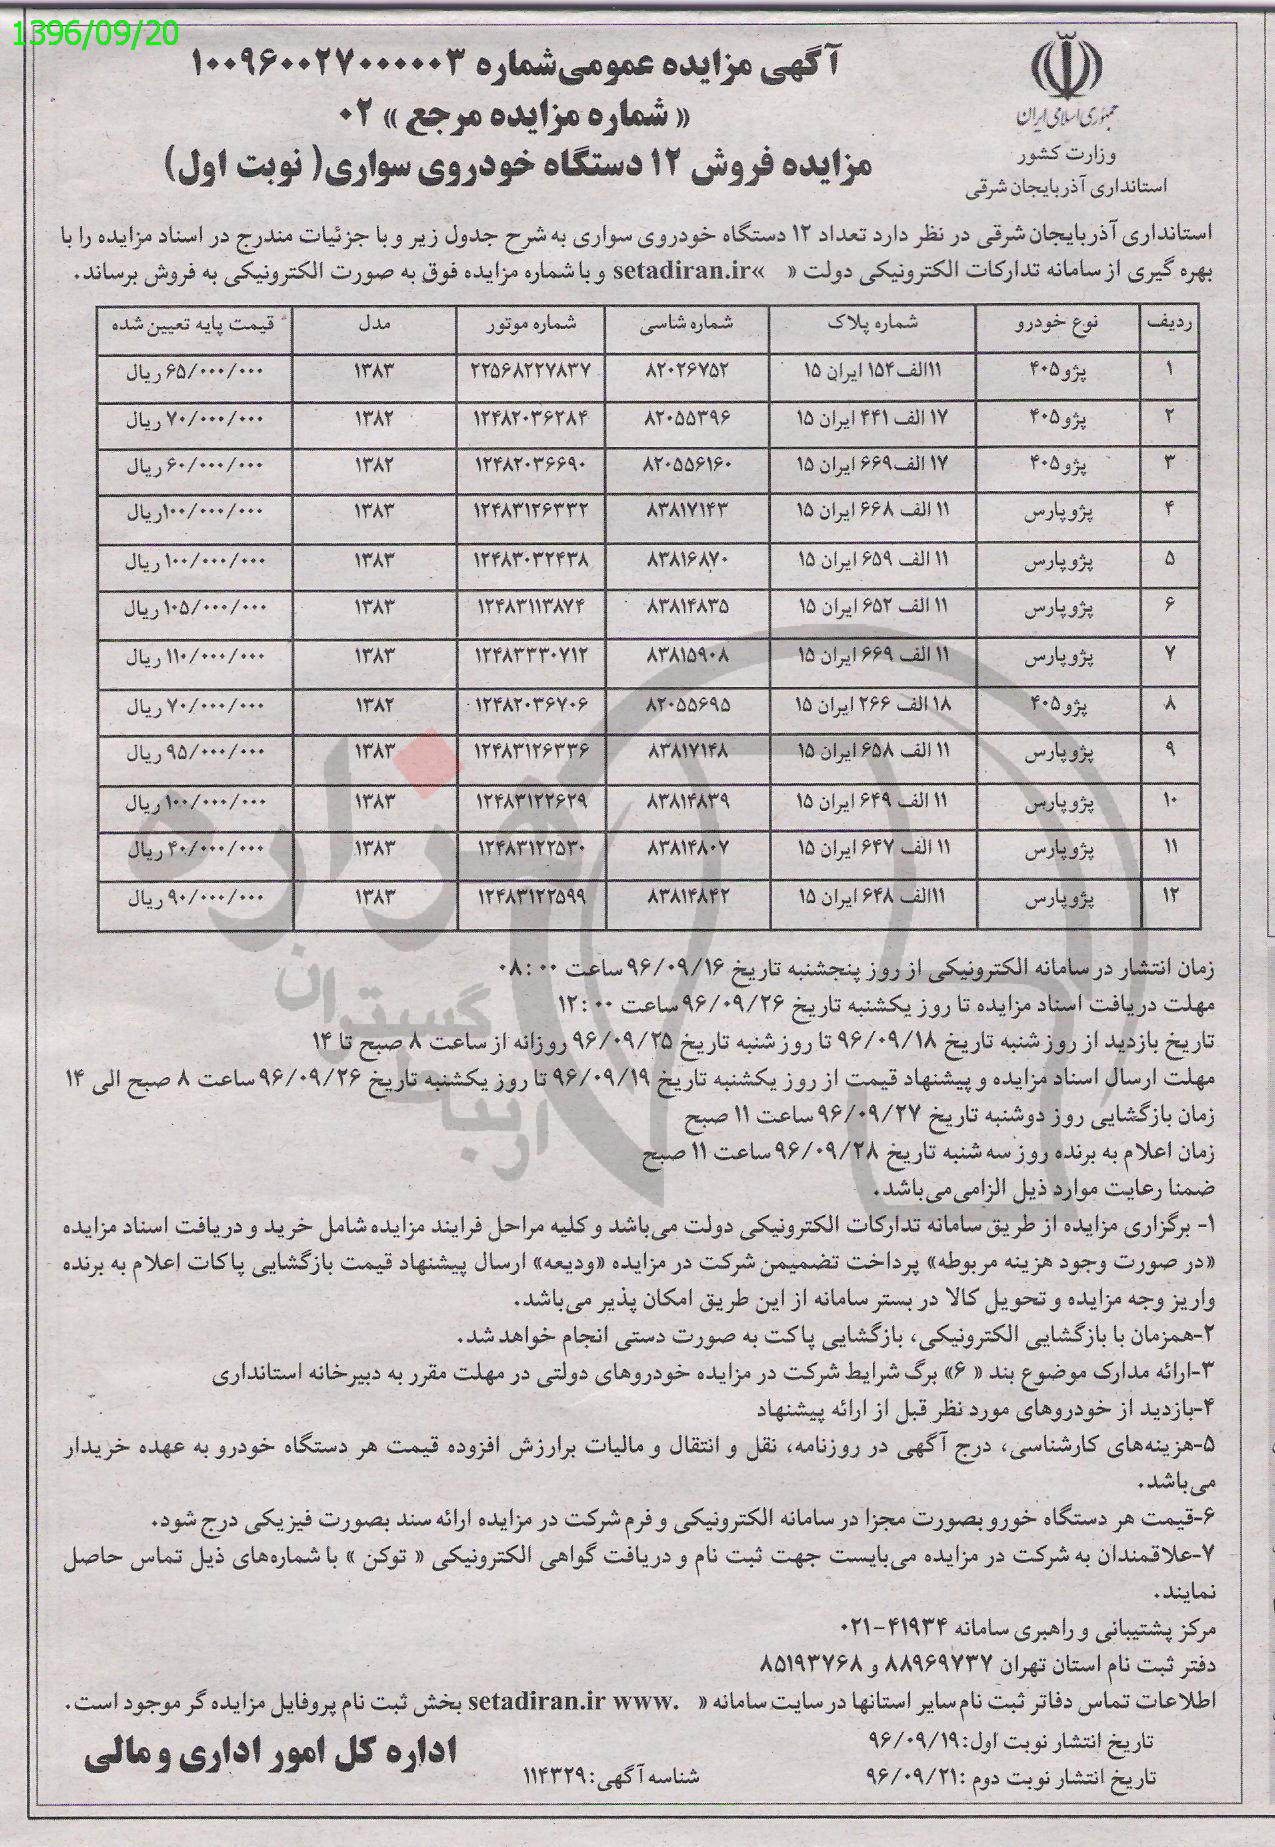 1396/09/20
جمهوری اسلامی ایران
وزارت کشور
استانداری آذربایجان شرقی
آگهی مزایده عمومی شماره ۱۰۰۹۶۰۰۲۷۰۰۰۰۰۳
« شماره مزایده مرجع » ۰۲
مزایده فروش ۱۲ دستگاه خودروی سواری( نوبت اول)
استانداری آذربایجان شرقی در نظر دارد تعداد ۱۲ دستگاه خودروی سواری به شرح جدول زیر و با جزئیات مندرج در اسناد مزایده را با
بهره گیری از سامانه تدارکات الکترونیکی دولت « setadiran.ir» و با شماره مزایده فوق به صورت الکترونیکی به فروش برساند.
ردیف نوع خودرو شماره پلاک شماره شاسی شماره موتور مدل قیمت پایه تعیین شده
۱ پژو ۴۰۵ ۱۱الف۱۵۴ ایران ۱۵ ۸۲۰۲۶۷۵۲ ۲۲۵۶۸۲۲۷۸۳۷ ۱۳۸۳ ۶۵/۰۰۰/۰۰۰ ریال
۲ پژو ۴۰۵ ۱۷ الف ۴۴۱ ایران ۱۵ ۸۲۰۵۵۳۹۶ ۱۲۴۸۲۰۳۶۲۸۴ ۱۳۸۲ ۷۰/۰۰۰/۰۰۰ ریال
۳ پژو ۴۰۵ ۱۷ الف۶۶۹ ایران ۱۵ ۸۲۰۵۵۶۱۶۰ ۱۲۴۸۲۰۳۶۶۹۰ ۱۳۸۲ ۶۰/۰۰۰/۰۰۰ ریال
۴ پژو پارس ۱۱ الف ۶۶۸ ایران ۱۵ ۸۳۸۱۷۱۴۳ ۱۲۴۸۳۱۲۶۳۳۲ ۱۳۸۳ ۱۰۰/۰۰۰/۰۰۰ریال
۵ پژو پارس ۱۱ الف ۶۵۹ ایران ۱۵ ۸۳۸۱۶۸۷۰ ۱۲۴۸۳۰۳۲۴۳۸ ۱۳۸۳ ۱۰۰/۰۰۰/۰۰۰ ریال
۶ پژو پارس ۱۱ الف ۶۵۲ ایران ۱۵ ۸۳۸۱۴۸۳۵ ۱۲۴۸۳۱۱۳۸۷۴ ۱۳۸۳ ۱۰۵/۰۰۰/۰۰۰ ریال
۷ پژو پارس ۱۱ الف ۶۶۹ ایران ۱۵ ۸۳۸۱۵۹۰۸ ۱۲۴۸۳۳۳۰۷۱۲ ۱۳۸۳ ۱۱۰/۰۰۰/۰۰۰ ریال
۸ پژو ۴۰۵ ۱۸ الف ۲۶۶ ایران ۱۵ ۸۲۰۵۵۶۹۵ ۱۲۴۸۲۰۳۶۷۰۶ ۱۳۸۲ ۷۰/۰۰۰/۰۰۰ ریال
۹ پژو پارس ۱۱ الف ۶۵۸ ایران ۱۵ ۸۳۸۱۷۱۴۸ ۱۲۴۸۳۱۲۶۳۳۶ ۱۳۸۳ ۹۵/۰۰۰/۰۰۰ ریال
۱۰ پژو پارس ۱۱ الف ۶۴۹ ایران ۱۵ ۸۳۸۱۴۸۳۹ ۱۲۴۸۳۱۲۲۶۲۹ ۱۳۸۳ ۱۰۰/۰۰۰/۰۰۰ ریال
۱۱ پژو پارس ۱۱ الف ۶۴۷ ایران ۱۵ ۸۳۸۱۴۸۰۷ ۱۲۴۸۳۱۲۲۵۳۰ ۱۳۸۳ ۴۰/۰۰۰/۰۰۰ ریال
۱۲ پژو پارس ۱۱الف ۶۴۸ ایران ۱۵ ۸۳۸۱۴۸۴۲ ۱۲۴۸۳۱۲۲۵۹۹ ۱۳۸۳ ۹۰/۰۰۰/۰۰۰ ریال
زمان انتشار در سامانه الکترونیکی از روز پنجشنبه تاریخ ۹۶/۰۹/۱۶ ساعت ۰۸:۰۰
مهلت دریافت اسناد مزایده تا روز یکشنبه تاریخ ۹۶/۰۹/۲۶ ساعت ۱۲:۰۰
تاریخ بازدید از روز شنبه تاریخ ۹۶/۰۹/۱۸ تا روز شنبه تاریخ ۹۶/۰۹/۲۵ روزانه از ساعت ۸ صبح تا ۱۴
مهلت ارسال اسناد مزایده و پیشنهاد قیمت از روز یکشنبه تاریخ ۹۶/۰۹/۱۹ تا روز یکشنبه تاریخ ۹۶/۰۹/۲۶ ساعت ۸ صبح الی ۱۴
زمان بازگشایی روز دوشنبه تاریخ ۹۶/۰۹/۲۷ ساعت ۱۱ صبح
زمان اعلام به برنده روز سه شنبه تاریخ ۹۶/۰۹/۲۸ ساعت ۱۱ صبح
ضمنا رعایت موارد ذیل الزامی می‌باشد.
۱- برگزاری مزایده از طریق سامانه تدارکات الکترونیکی دولت می‌باشد و کلیه مراحل فرایند مزایده شامل خرید و دریافت اسناد مزایده
«در صورت وجود هزینه مربوطه» پرداخت تضمیمن شرکت در مزایده «ودیعه» ارسال پیشنهاد قیمت بازگشایی پاکات اعلام به برنده
واریز وجه مزایده و تحویل کالا در بستر سامانه از این طریق امکان پذیر می‌باشد.
۲-همزمان با بازگشایی الکترونیکی، بازگشایی پاکت به صورت دستی انجام خواهد شد.
۳-ارائه مدارک موضوع بند « ۶» برگ شرایط شرکت در مزایده خودروهای دولتی در مهلت مقرر به دبیرخانه استانداری
۴-بازدید از خودروهای مورد نظر قبل از ارائه پیشنهاد
۵-هزینه‌های کارشناسی، درج آگهی در روزنامه، نقل و انتقال و مالیات برارزش افزوده قیمت هر دستگاه خودرو به عهده خریدار
می‌باشد.
۶-قیمت هر دستگاه خورو بصورت مجزا در سامانه الکترونیکی و فرم شرکت در مزایده ارائه سند بصورت فیزیکی درج شود.
۷-علاقمندان به شرکت در مزایده می‌بایست جهت ثبت نام و دریافت گواهی الکترونیکی « توکن » با شماره‌های ذیل تماس حاصل
نمایند.
مرکز پشتیبانی و راهبری سامانه ۴۱۹۳۴-۰۲۱
دفتر ثبت نام استان تهران ۸۸۹۶۹۷۳۷ و ۸۵۱۹۳۷۶۸
اطلاعات تماس دفاتر ثبت نام سایر استانها در سایت سامانه « setadiran.ir www. بخش ثبت نام پروفایل مزایده گر موجود است.
تاریخ انتشار نوبت اول:۹۶/۰۹/۱۹
تاریخ انتشار نوبت دوم :۹۶/۰۹/۲۱
شناسه آگهی:۱۱۴۳۲۹
اداره کل امور اداری و مالی
هزاره
گستران
ارتباط